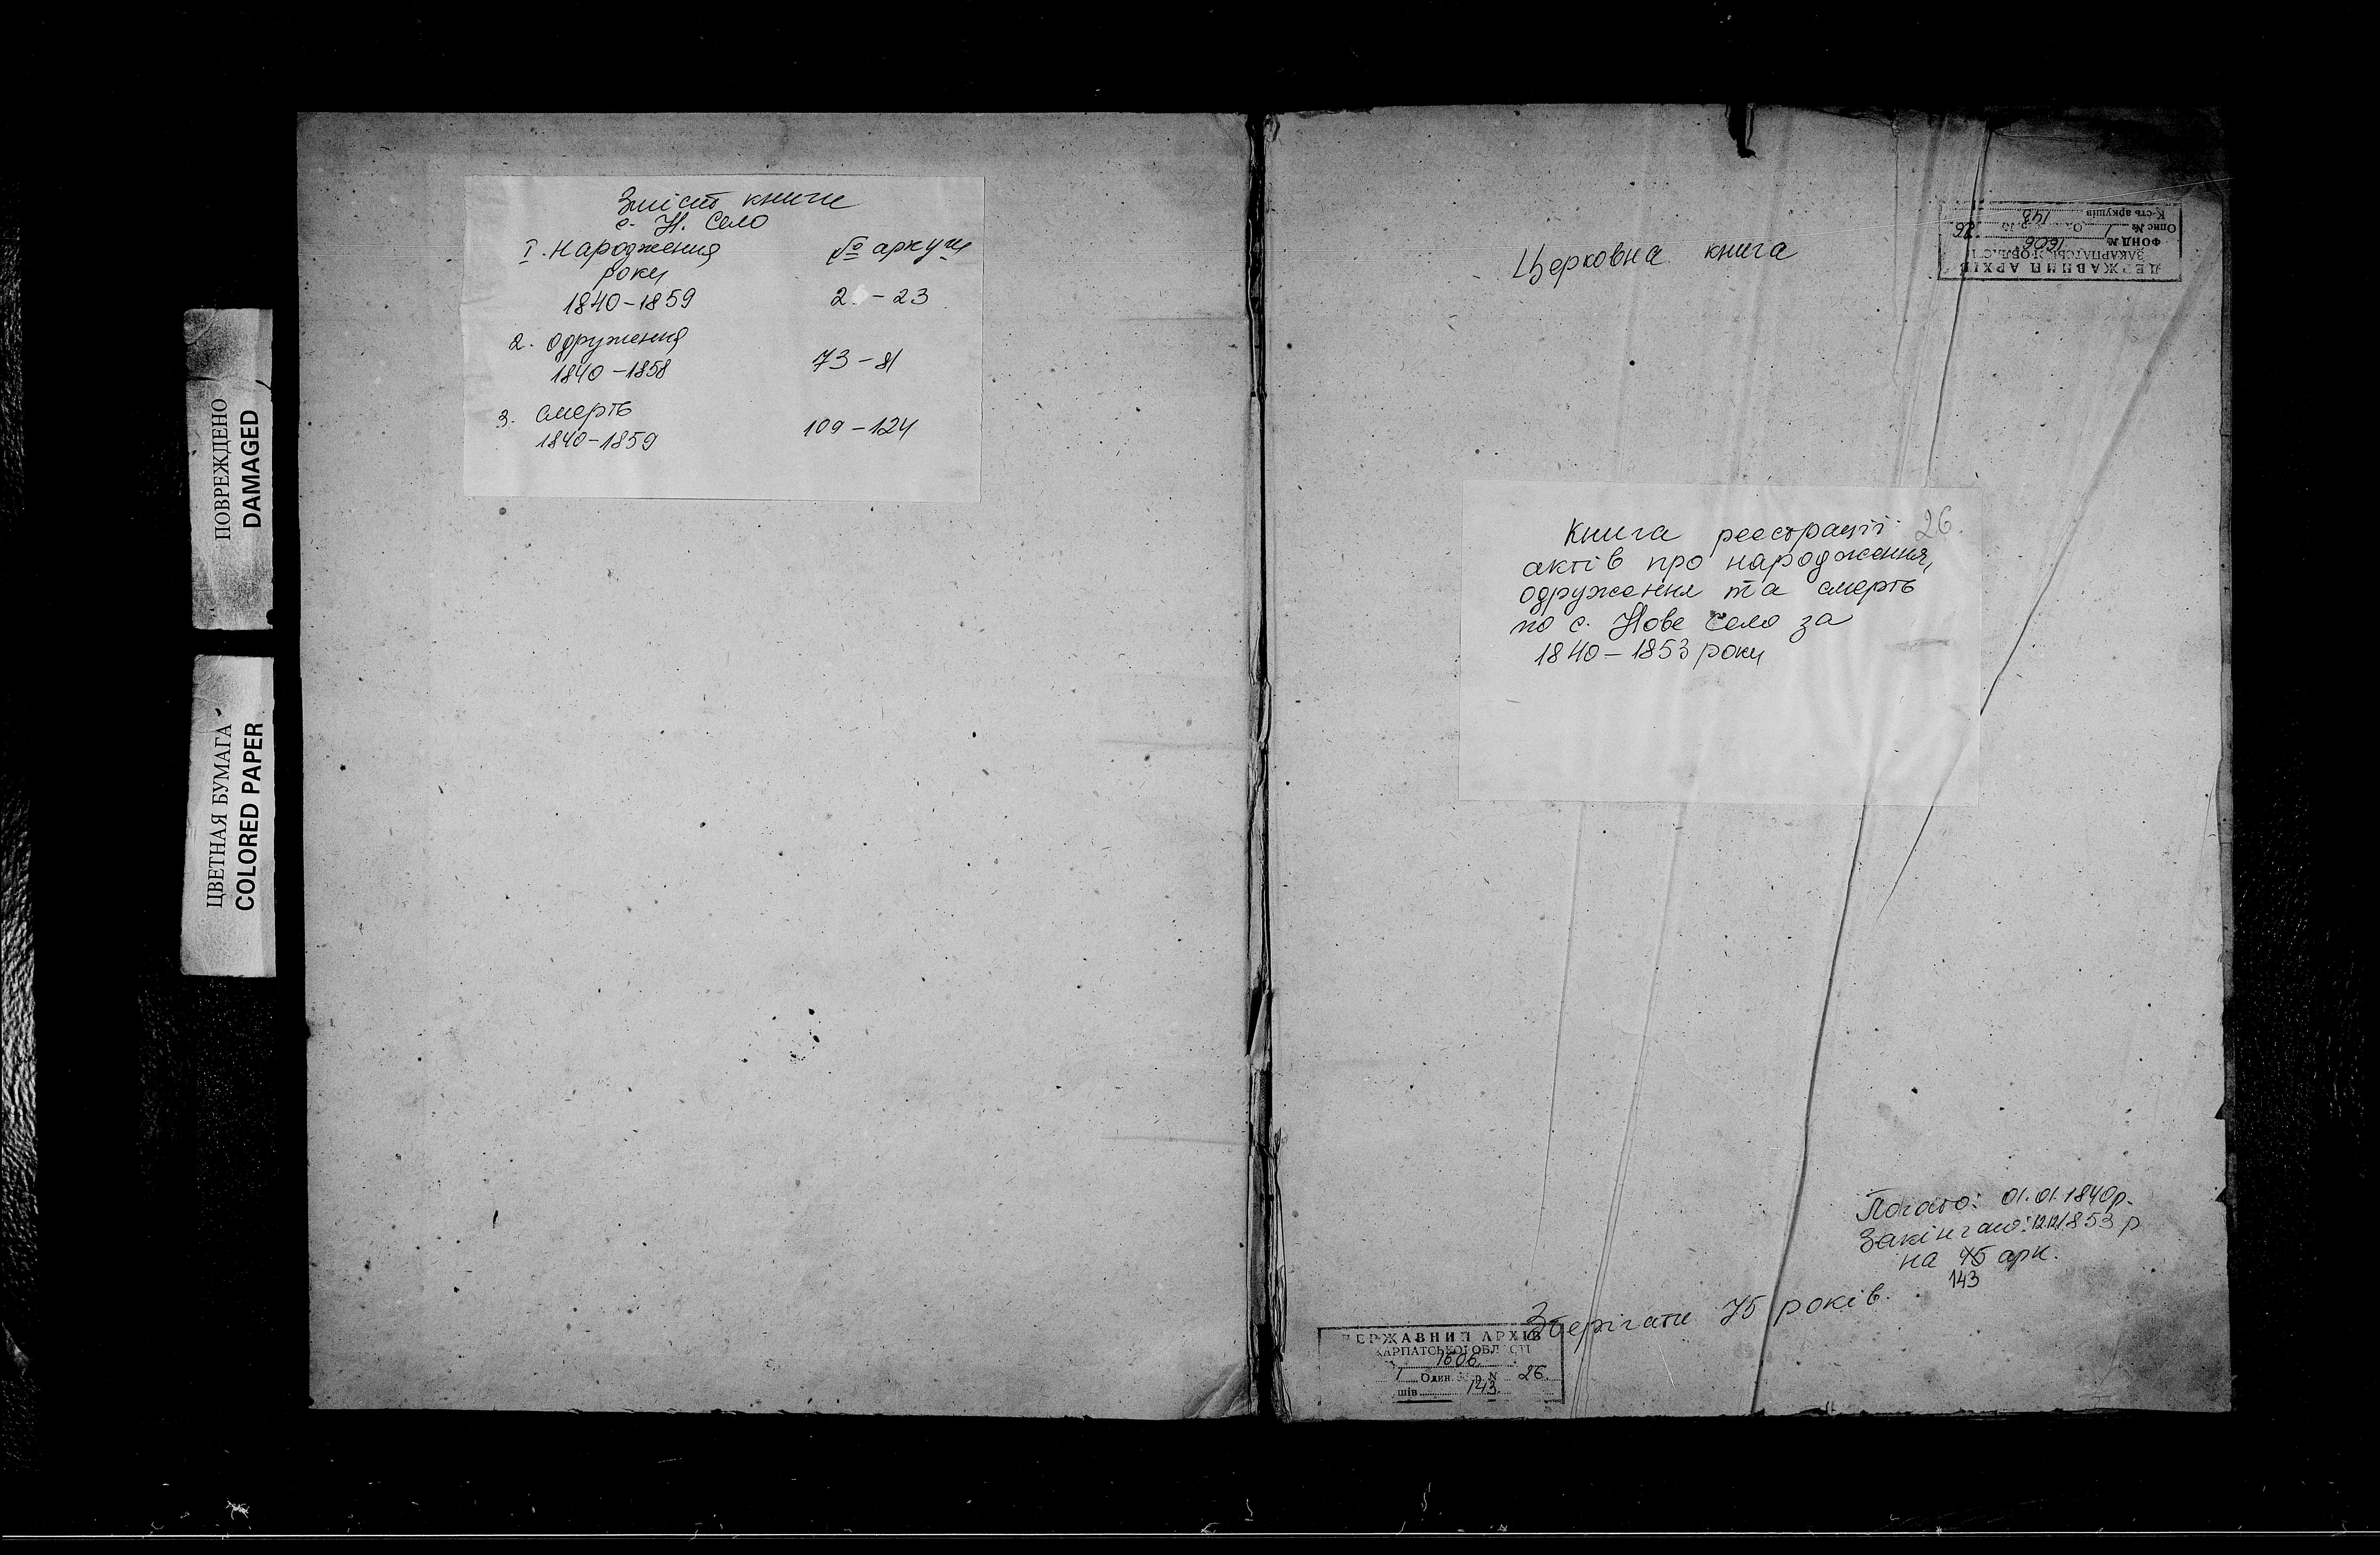 ПОВРЕЖДЕНО
DAMAGED
ЦВЕТНАЯ БУМАГА
COLORED PAPER
Зміст книги
с. Н. Село
I. Народження № аркуш
роки
1840-1859 2 - 23
2. одруження
1840-1858 73-81
3. смерть
1840-1859 109-124
Церковна книга
ДЕРЖАВНИЙ АРХІВ
ЗАКАРПАТСЬКОЇ ОБЛАСТІ
ФОНД № 1606
Опис № 1 26
К-сть аркушів 143
Книга реєстрації 26.
актів про народження,
одруження та смерть
по с. Нове Село за
1840-1853 роки
Почато: 01.01.1840р.
Закінчано: 12.12.1853 р
на арк.
143
Зберігати 75 років.
ДЕРЖАВНИЙ АРХІВ
КАРПАТСЬКОЇ ОБЛ СТІ
1606
1 Один. р. N 26.
шів 143